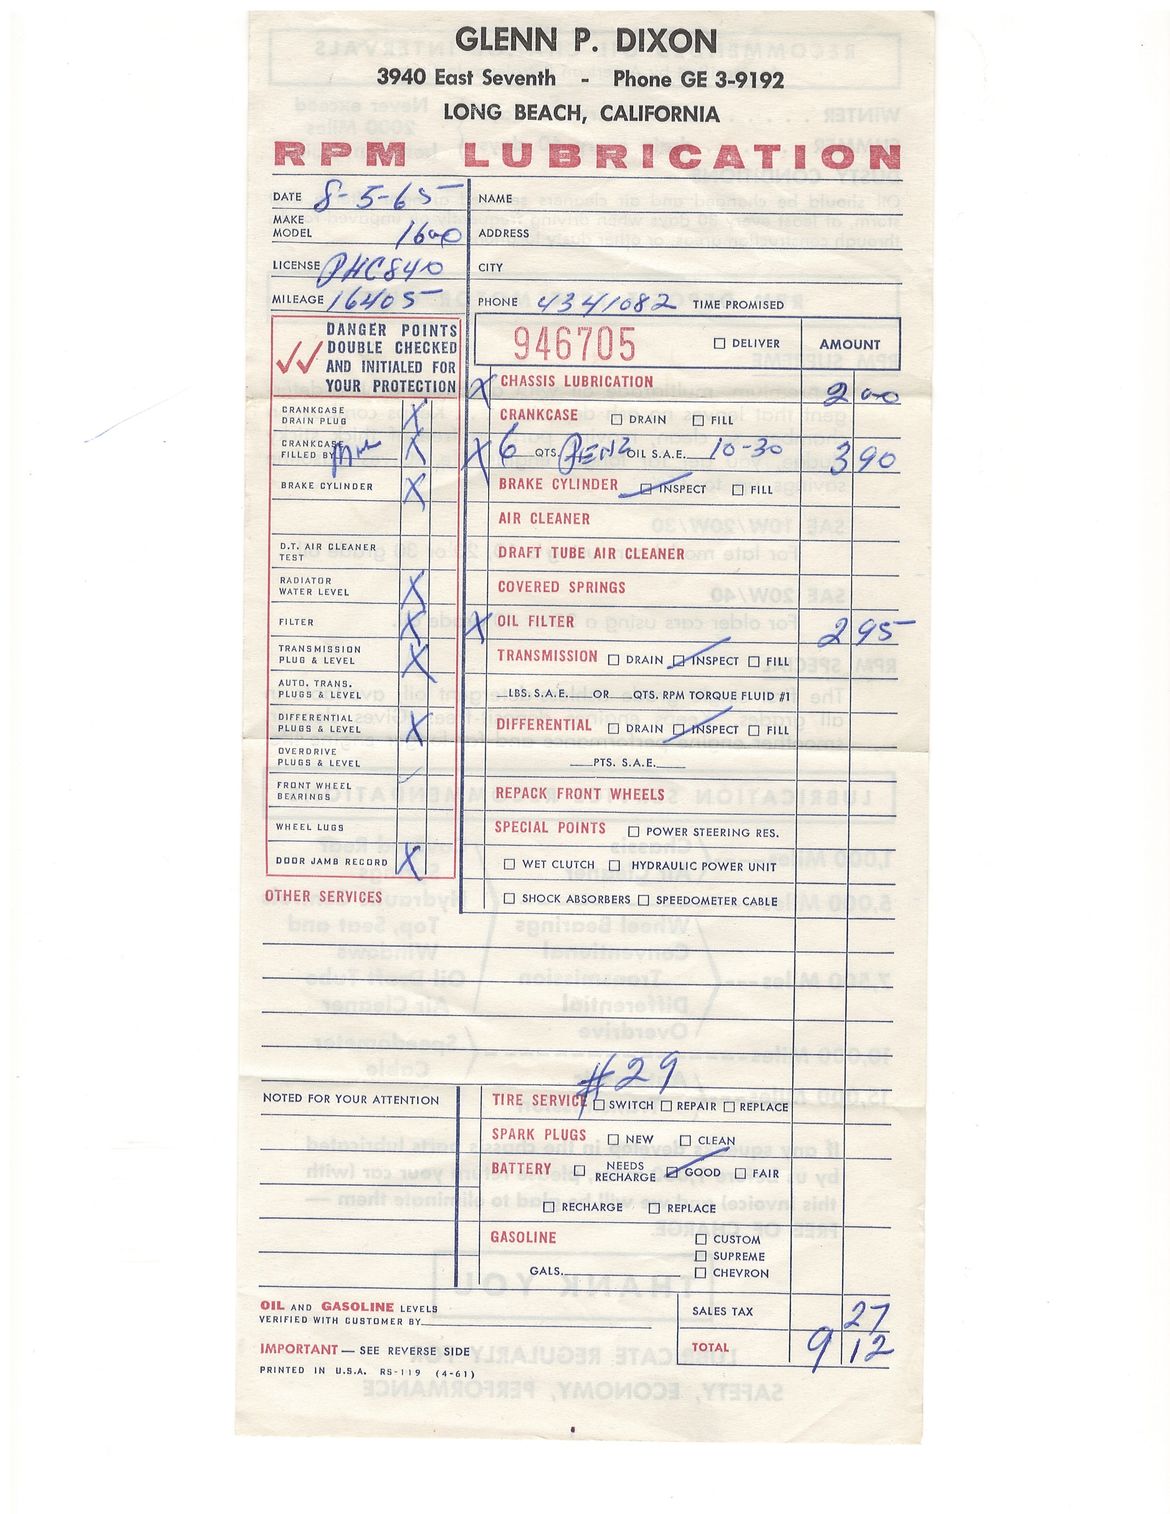 GLENN P. DIXON
3940 East Seventh - Phone GE 3-9192
LONG BEACH, CALIFORNIA
RPM LUBRICATION
DATE 8-5-65 NAME
MAKE
MODEL 1600 ADDRESS
LICENSE PHC840 CITY
MILEAGE 16405 PHONE 4341082 TIME PROMISED
DANGER POINTS
DOUBLE CHECKED
AND INITIALED FOR
YOUR PROTECTION
946705 DELIVER AMOUNT
X CHASSIS LUBRICATION 2 00
CRANKCASE
DRAIN PLUG X
CRANKCASE DRAIN FILL
CRANKCASE
FILLED BY X
X 6 QTS. PENZ OIL S.A.E. 10-30 3 90
BRAKE CYLINDER X
BRAKE CYLINDER INSPECT FILL
AIR CLEANER
D.T. AIR CLEANER
TEST
DRAFT TUBE AIR CLEANER
RADIATOR
WATER LEVEL X
COVERED SPRINGS
FILTER X
X OIL FILTER 2 95
TRANSMISSION
PLUG & LEVEL X
TRANSMISSION DRAIN INSPECT FILL
AUTO. TRANS.
PLUGS & LEVEL
LBS. S.A.E. OR QTS. RPM TORQUE FLUID #1
DIFFERENTIAL
PLUGS & LEVEL X
DIFFERENTIAL DRAIN INSPECT FILL
OVERDRIVE
PLUGS & LEVEL
PTS. S.A.E.
FRONT WHEEL
BEARINGS
REPACK FRONT WHEELS
WHEEL LUGS
SPECIAL POINTS POWER STEERING RES.
DOOR JAMB RECORD X
WET CLUTCH HYDRAULIC POWER UNIT
OTHER SERVICES
SHOCK ABSORBERS SPEEDOMETER CABLE
#29
NOTED FOR YOUR ATTENTION
TIRE SERVICE SWITCH REPAIR REPLACE
SPARK PLUGS NEW CLEAN
BATTERY NEEDS RECHARGE GOOD FAIR
RECHARGE REPLACE
GASOLINE CUSTOM
SUPREME
GALS. CHEVRON
OIL AND GASOLINE LEVELS
VERIFIED WITH CUSTOMER BY
SALES TAX 27
TOTAL 9 12
IMPORTANT — SEE REVERSE SIDE
PRINTED IN U.S.A. RS-119 (4-61)